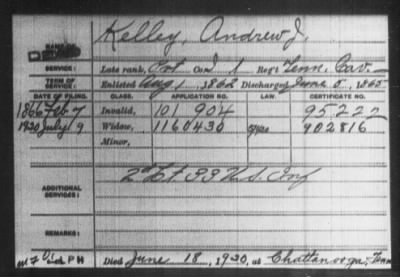 Kelley, Andrew J.
NAME OF
SERVICE: Late rank, Pvt Co. I 1 Reg't Tenn. Cav.
TERM OF SERVICE: Enlisted Aug 1, 1862 Discharged June 5, 1865
DATE OF FILING. CLASS. APPLICATION NO. LAW. CERTIFICATE NO.
1866 Feb 7 Invalid, 101 904 95222
1920 July 9 Widow, 1160430 902816
Minor,
2d Lt 33 U.S. Inf
ADDITIONAL SERVICES:
REMARKS:
Died June 18, 1920, at Chattanooga, Tenn